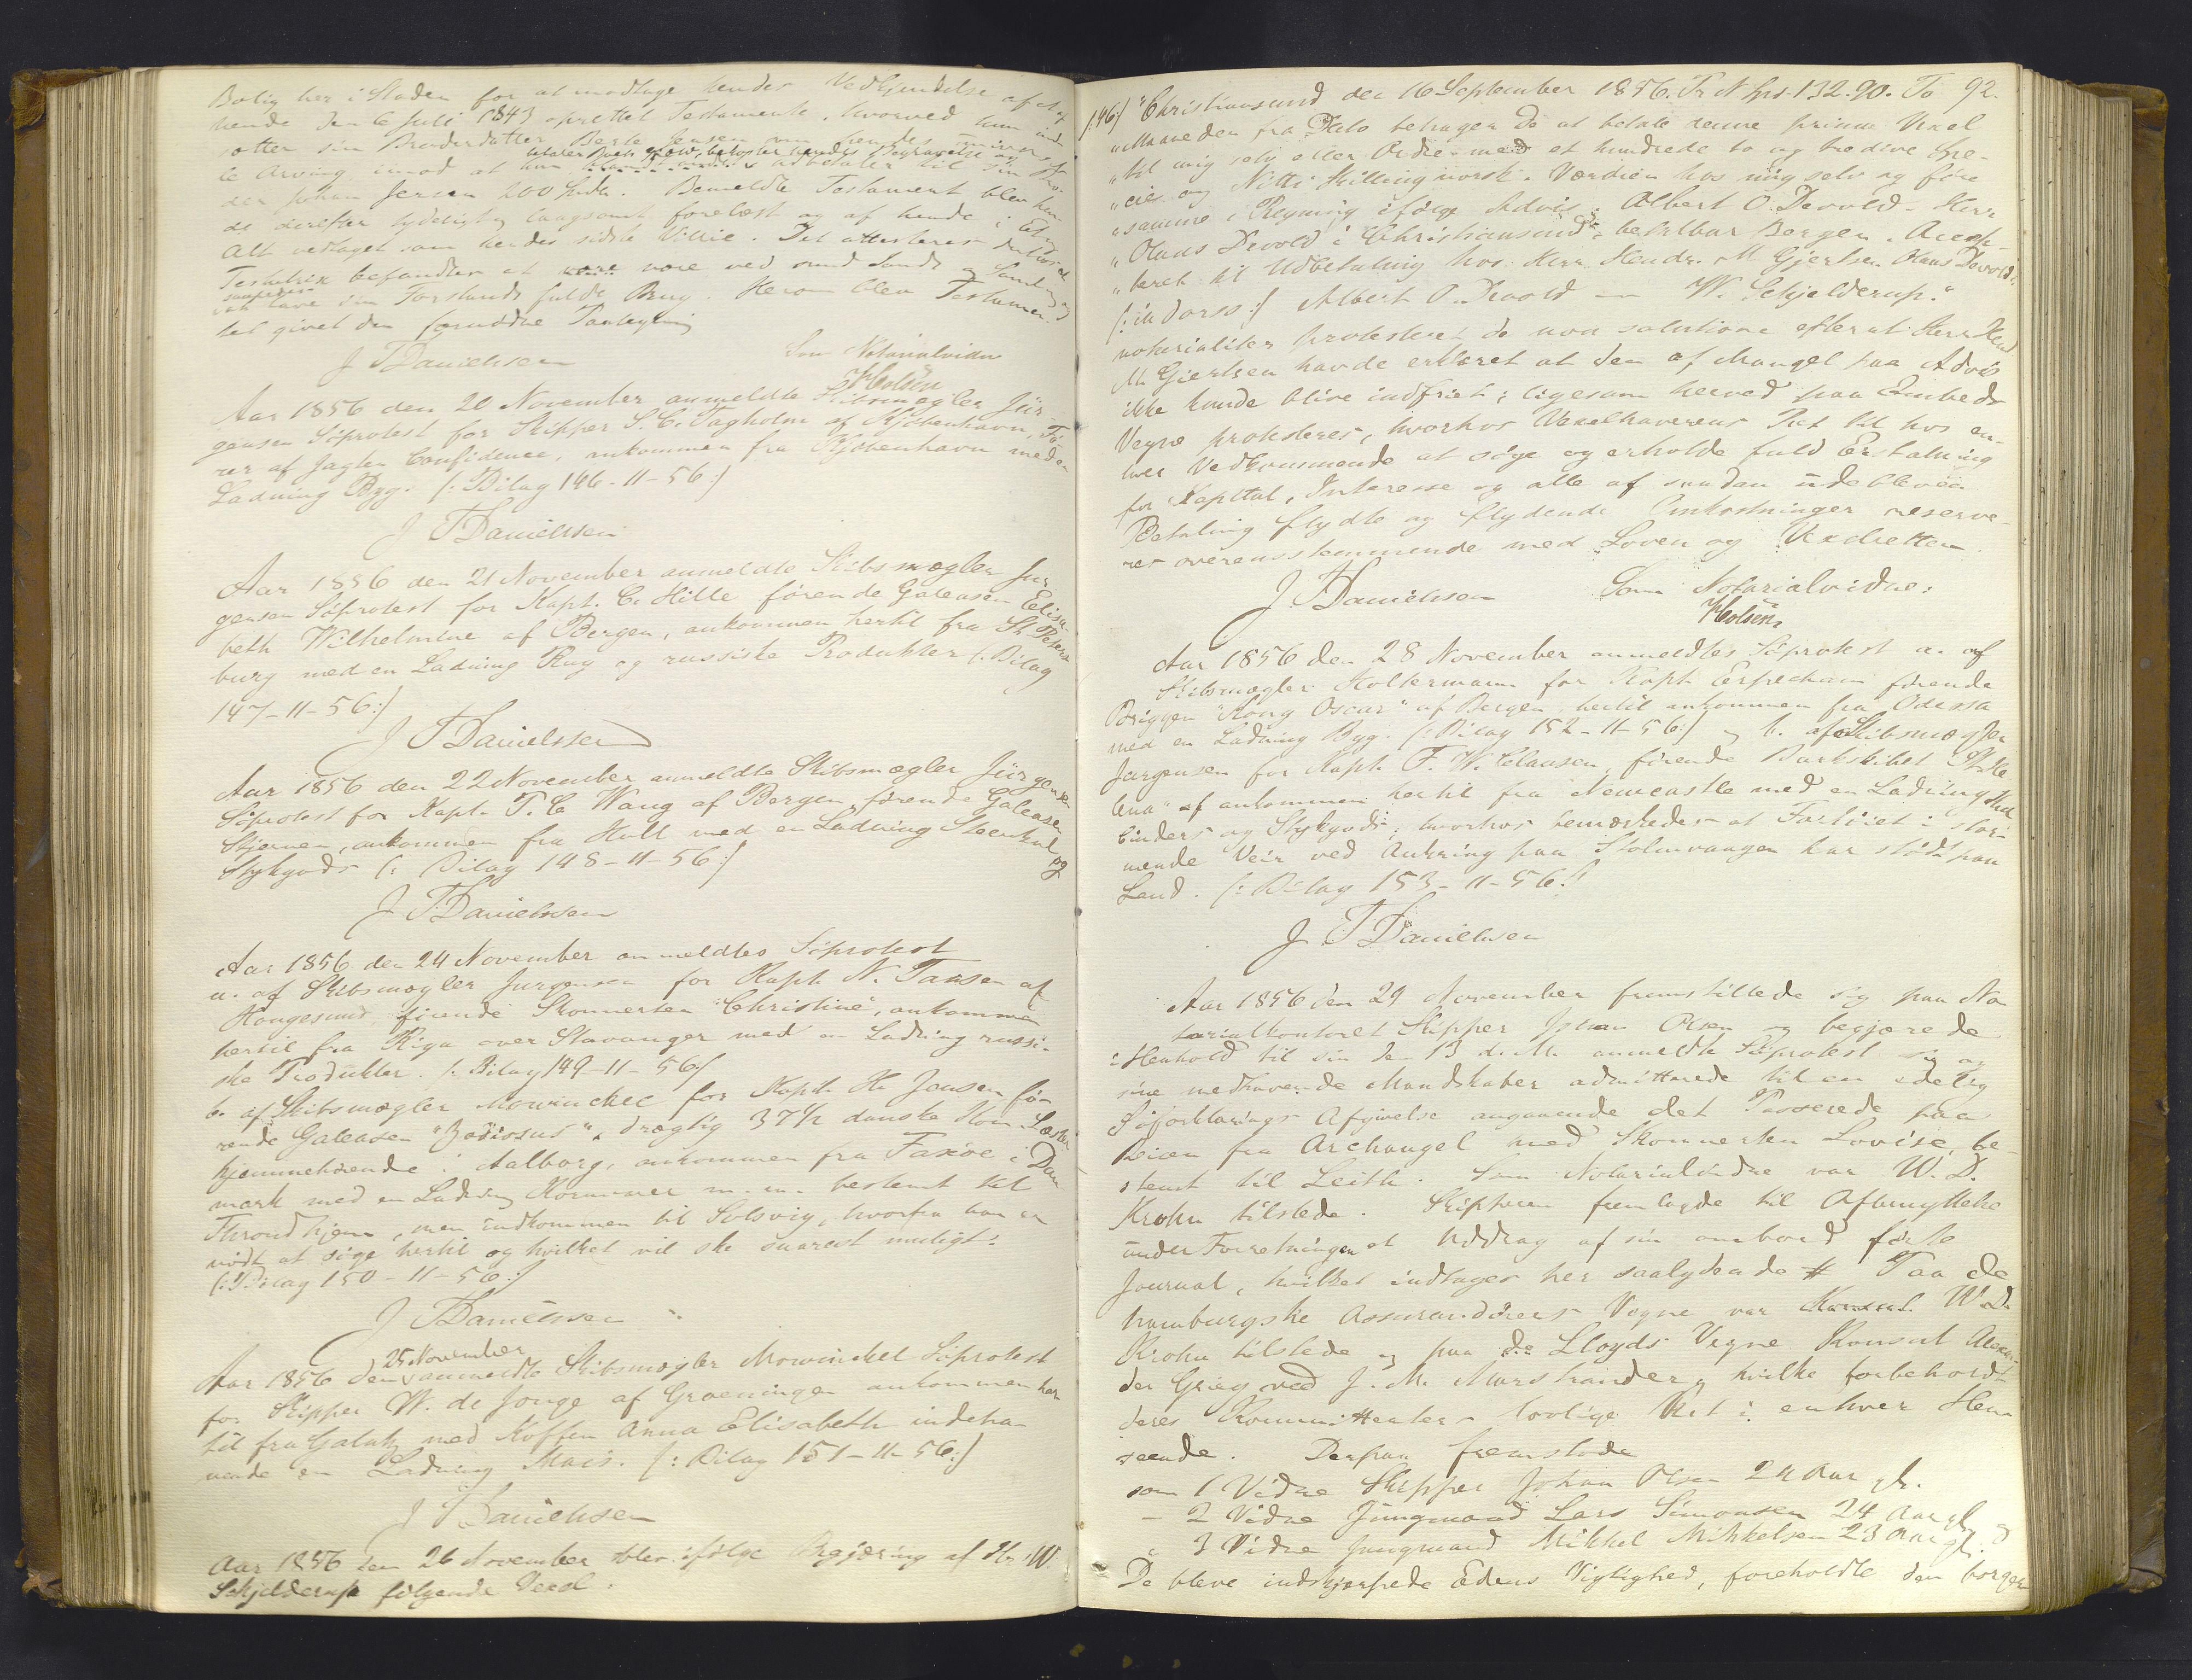 Bolig her i Staden for at modtage hendes Vedkjendelse af et af
hende den 6 Juli 1843 oprettet Testamente, hvorved hun ind
sætter sin Broderdatter Berte Jensen som hendes univers
le Arving imod at hun betaler hendes Gjæld, bekoster hendes Begravelse og udbetaler til sin Bro-
der Johan Jensen 200 Spdr. Bemeldte Testament blev hen-
de derefter tydeligt og langsomt forelæst og af hende i Et og
Alt vedtaget som hendes sidste Villie. Det attesteres derhos at
Testatrix befandtes at være ved sund Sands og Samling og
saaledes at have sin Forstands fulde Brug. Herom blev Testamen-
tet givet den fornødne Paategning
J. F. Danielssen
Som Notarialvidne
K Colsen
Aar 1856 den 20 November anmeldte Skibsmægler Jür-
gensen Søprotest for Skipper S. C. Tagholm af Kjøbenhavn, Fø-
rer af Jagten Confidence, ankommen fra Kjøbenhavn med en
Ladning Byg. (: Bilag 146-11-56:)
J. F. Danielssen
Aar 1856 den 21 November anmeldte Skibsmægler Jur
gensen Søprotest for Kapt. C. Hille førende Galeasen Elisa-
beth Wilhelmine af Bergen, ankommen hertil fra St. Peters
burg med en Ladning Rug og russiske Produkter (: Bilag
147-11-56:)
J. F. Danielssen
Aar 1856 den 22 November anmeldte Skibsmægler Jürgensen
Søprotest for Kapt. T. C Wang af Bergen, førende Galeasen
Stjernen, ankommen fra Hull med en Ladning Steenkul og
Stykgods (: Bilag 148-11-56:)
J. F. Danielssen
Aar 1856 den 24 November anmeldtes Søprotest
a. af Skibsmægler Jurgensen for Kapt N. Tansen af
Haugesund førende Skonnerten "Christine", ankommen
hertil fra Riga over Stavanger med en Ladning russi-
ske Produkter. (: Bilag 149-11-56:)
b. af Skibsmægler Mowinckel for Kapt. H. Jensen fø-
rende Galeasen "Zodiacus", drægtig 37½ danske Kom. Læster
hjemmehørende i Aalborg, ankommen fra Faxøe i Dan
mark med en Ladning Kornvarer m.m. bestemt til
Throndhjem, men indkommen til Solsvig, hvorfra han er
nødt at søge hertil og hvilket vil ske snarest muligt.
(: Bilag 150-11-56:)
J. F. Danielssen
Aar 1856 den 25 November anmeldte Skibsmægler Mowinckel Søprotest
for Skipper W. de Jonge af Groeningen ankommen her
til fra Galatz med Koffen Anna Elisabeth indeha-
vende en Ladning Mais. (: Bilag 151-11-56:)
J. F. Danielssen
Aar 1856 den 26 November blev ifølge Begjæring af Hr. W
Schjelderup følgende Vexel.
92.
(:46:) "Christiansund den 16 September 1856. Pr. N Spd. 132.90. To
"Maaneder fra Dato behager De at betale denne prima Vexel
"til mig selv eller Ordre med et hundrede to og tredive Spe-
"cier og Nitti Skilling norsk. Værdien hos mig selv og føre
"samme i Regning ifølge Advis. Albert O. Devold - Herr
"Olaus Devold i Christiansund, betalbar Bergen. Accep-
"teret til Udbetaling hos Herr Hendr. M Gjertsen Olaus Devold
(: in dorso :) Albert O. Devold — W. Schjelderup."
notarialiter protesteret de non solutione efterat Herr Hend
M. Gjertsen havde erklæret at den af Mangel paa Advis
ikke kunde blive indfriet; ligesom herved paa Embeds
Vegne protesteres, hvorhos Vexelhaverens Ret til hos en-
hver Vedkommende at søge og erholde fuld Erstatning
for Kapital, Interesse og alle af saadan udebleven
Betaling flydte og flydende Omkostninger reserve-
res overensstemmende med Loven og Vexelretten.
J. F. Danielssen
Som Notarialvidne:
K Colsen
Aar 1856 den 28 November anmeldtes Søprotest a. af
Skibsmægler Koltermann for Kapt. Erpecham førende
Briggen "Kong Oscar" af Bergen, hertil ankommen fra Odessa
med en Ladning Byg. (: Bilag 152-11-56:) og b. af Skibsmægler
Jurgensen for Kapt. F. W. Clausen, førende Barkskibet
lena" af ankommen hertil fra Newcastle med en Ladning
Cinders og Stykgods, hvorhos bemærkedes at Fartøiet i stor-
mende Veir ved Ankring paa Holmvaagen har stødt paa
Land. (: Bilag 153-11-56:)
J. F. Danielssen
Aar 1856 den 29 November fremstillede sig paa No-
tarialkontoret Skipper Johan Olsen og begjærede
i Henhold til sin den 13 d. M. anmeldte Søprotest sig og
sine medhavende Mandskaber admitterede til en edelig
Søforklarings Afgivelse angaaende det Passerede paa
Reisen fra Archangel med Skonnerten Lovise, be-
stemt til Leith. Som Notarialvidne var W. D.
Krohn tilstede. Skipperen fremlagde til Afbenyttelse
under Forretningen et Uddrag af sin ombord førte
Journal, hvilket indtages her saalydende # Paa de
hamburgske Assurandører Vegne var Konsul W. D.
Krohn tilstede og paa de Lloyds Vegne Konsul Alexan-
der Grieg ved J. M. Marstrander, hvilke forbeholdt
deres Kommittenter lovlige Ret i enhver Hen
seende. Derpaa fremstode
som 1 Vidne Skipper Johan Olsen 24 Aar gl.
- 2 Vidne Jungmand Lars Simonsen 24 Aar gl
" 3 Vidne Jungmand Mikkel Mikkelsen 23 Aar gl.
De bleve indskjærpede Edens Vigtighed, foreholdte den borger